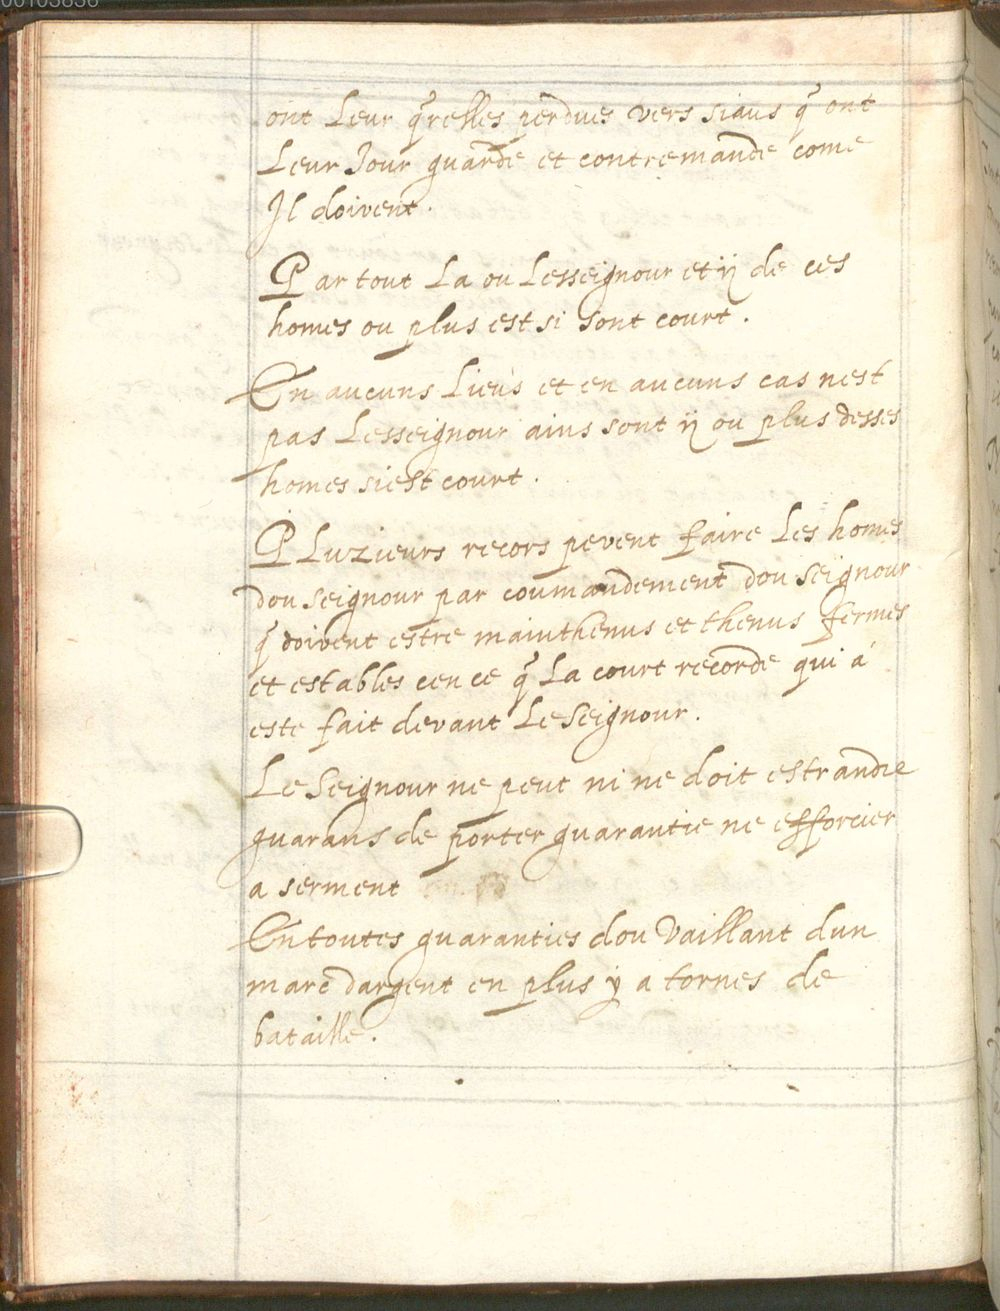 00103836
ont Leur q̃relles perdues vers siaus q̃ ont
Leur Jour guarde et contremande come
Il doivent.
Par tout La ou Lesseignour et ij de ces
homes ou plus est si sont court.
En aucuns Lieus et en aucuns cas nest
pas Lesseignour ains sont ij ou plus desses
homes si est court.
PLuzieurs recors pevent faire Les homes
dou seignour par coumandement dou seignour
q̃ doivent estre mainthenus et thenus fermes
et estables cen ce q̃ La court recorde qui a
este fait devant Le Seignour.
Le Seignour ne peut ni ne doit estrandre
guarans de porter guarantie ne efforcier
a serment
En toutes guaranties dou vaillant dun
marc dargent en plus y a tornes de
bataille.